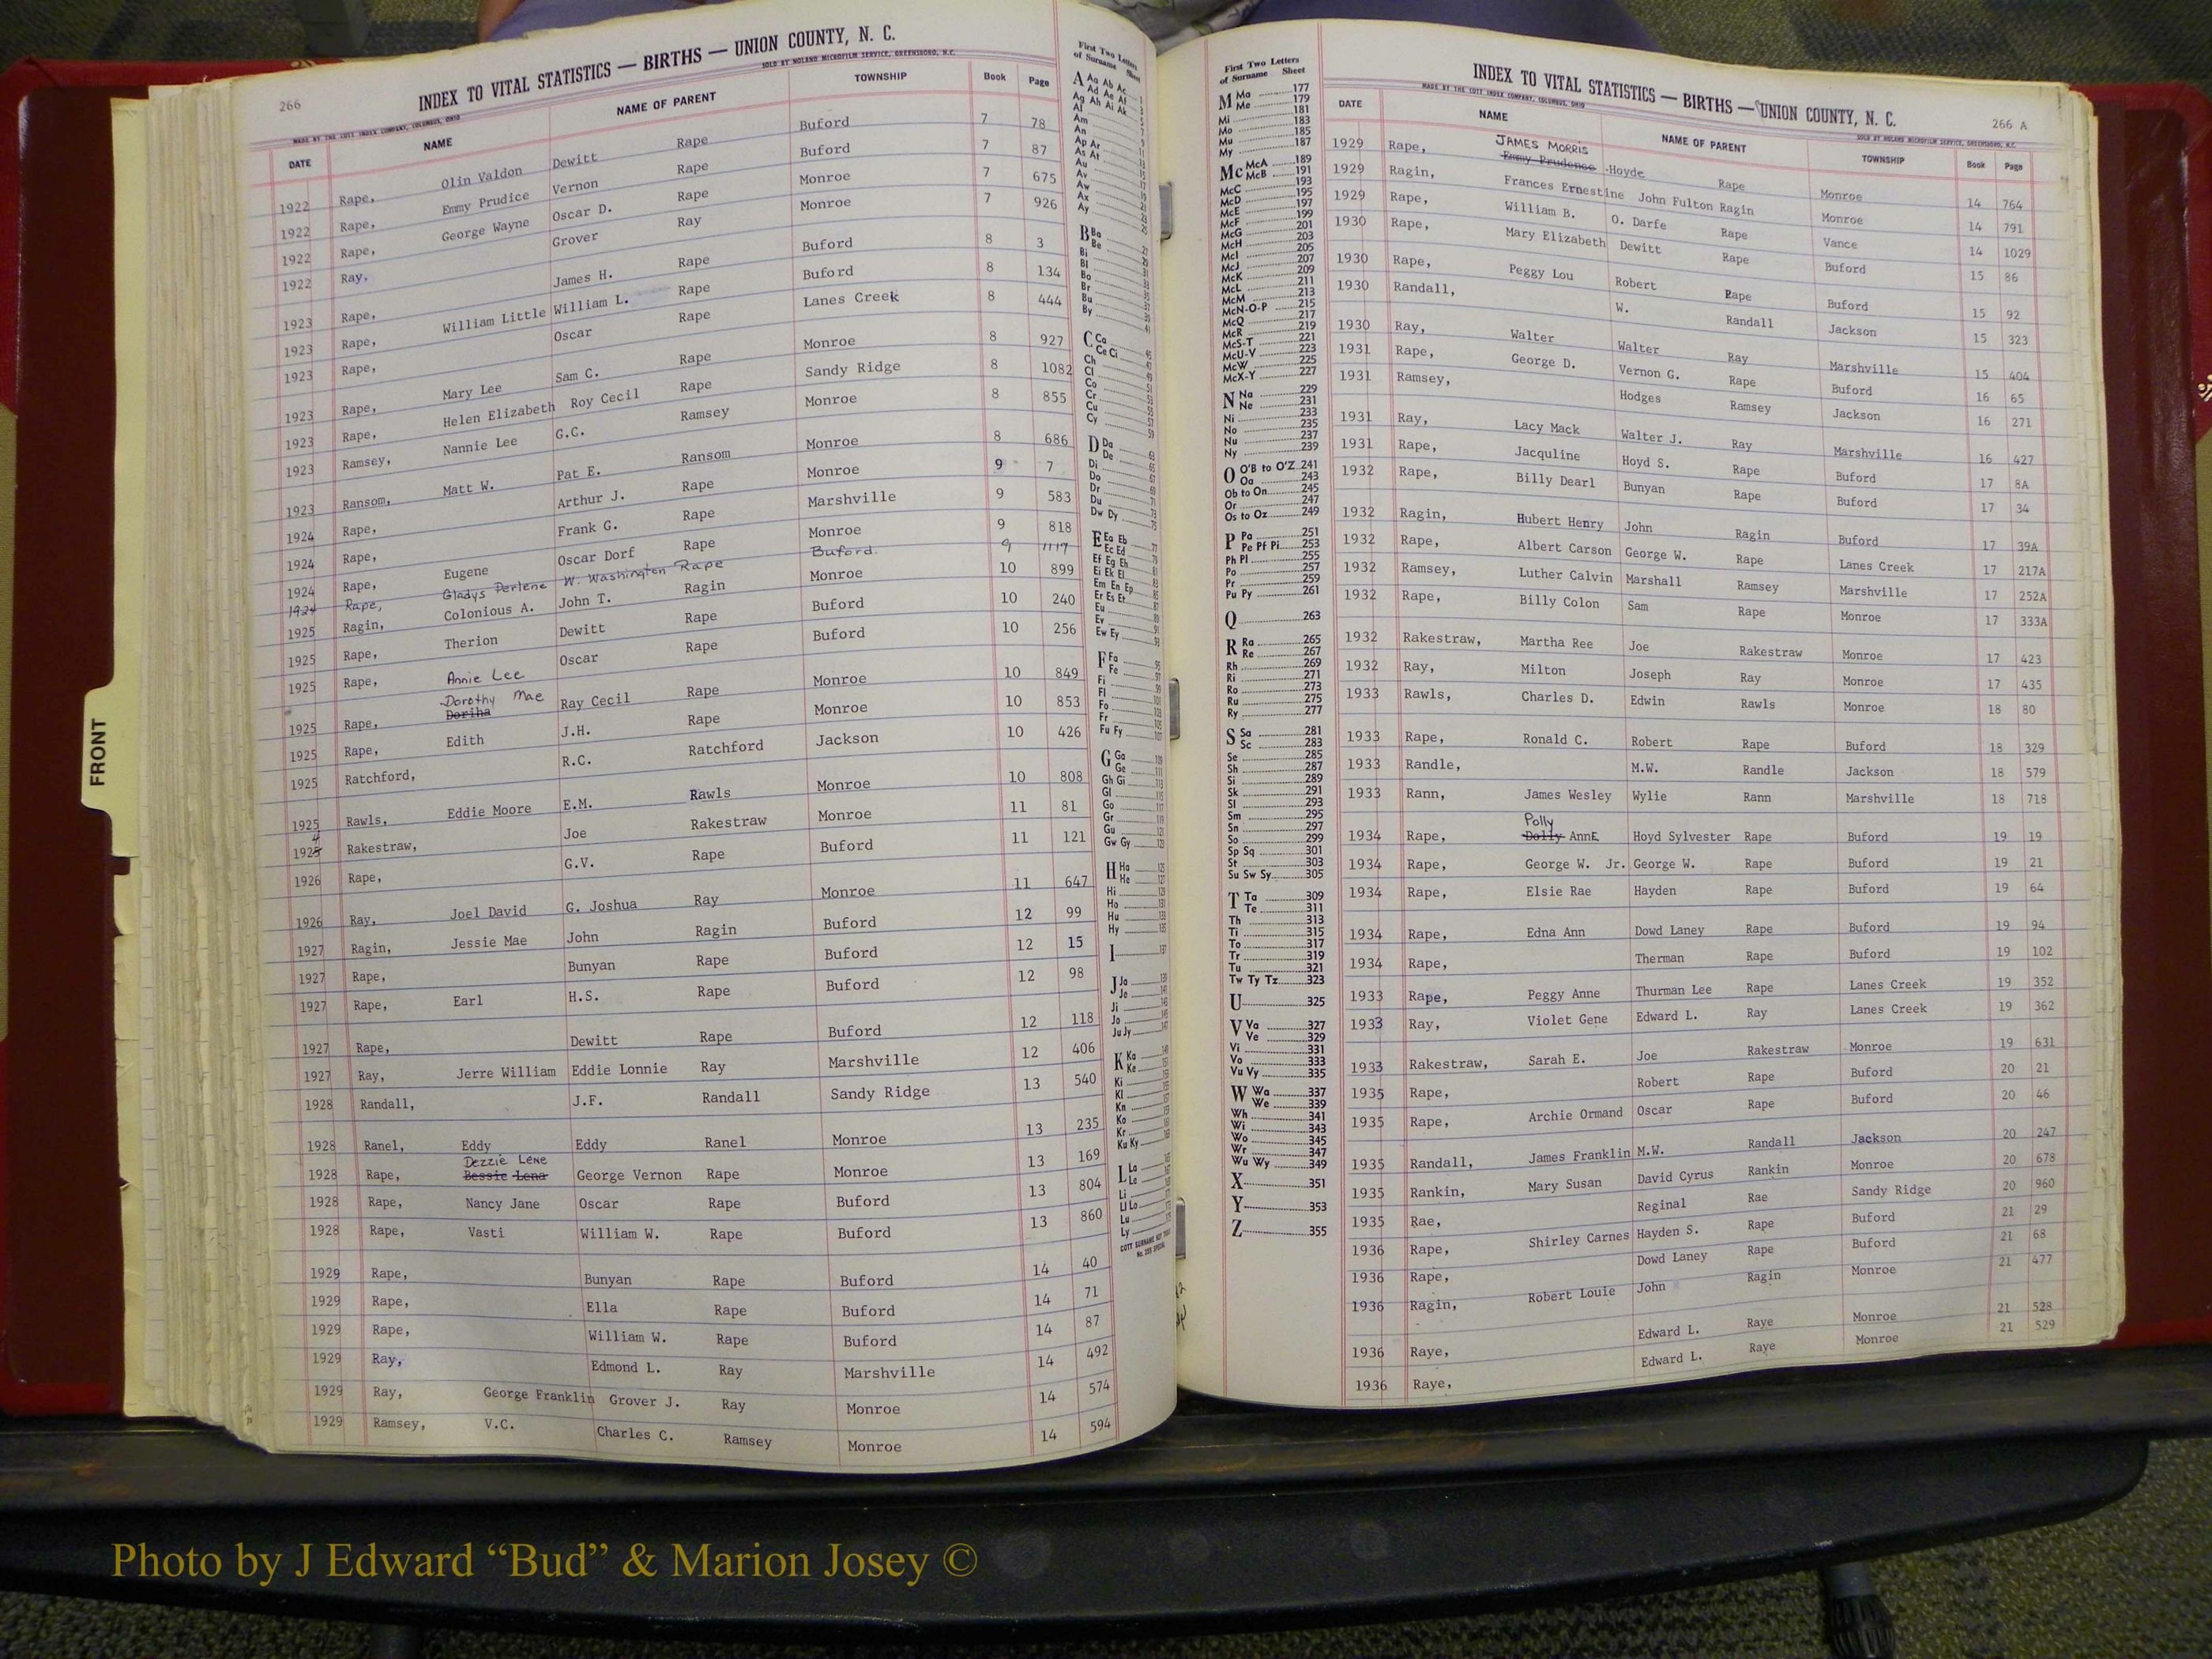 266
INDEX TO VITAL STATISTICS — BIRTHS — UNION COUNTY, N. C.
MADE BY THE COTT INDEX COMPANY, COLUMBUS, OHIO SOLD BY NOLAND MICROFILM SERVICE, GREENSBORO, N.C.
DATE NAME NAME OF PARENT TOWNSHIP Book Page
1922 Rape, Olin Valdon Dewitt Rape Buford 7 78
1922 Rape, Emmy Prudice Vernon Rape Buford 7 87
1922 Rape, George Wayne Oscar D. Rape Monroe 7 675
1922 Ray, Grover Ray Monroe 7 926
1923 Rape, James H. Rape Buford 8 3
1923 Rape, William Little William L. Rape Buford 8 134
1923 Rape, Oscar Rape Lanes Creek 8 444
1923 Rape, Mary Lee Sam C. Rape Monroe 8 927
1923 Rape, Helen Elizabeth Roy Cecil Rape Sandy Ridge 8 1082
1923 Ramsey, Nannie Lee G.C. Ramsey Monroe 8 855
1923 Ransom, Matt W. Pat E. Ransom Monroe 8 686
1924 Rape, Arthur J. Rape Monroe 9 7
1924 Rape, Frank G. Rape Marshville 9 583
1924 Rape, Eugene Oscar Dorf Rape Monroe 9 818
1924 Rape, Gladys Perlene W. Washington Rape Buford 9 1119
1925 Ragin, Colonious A. John T. Ragin Monroe 10 899
1925 Rape, Therion Dewitt Rape Buford 10 240
1925 Rape, Annie Lee Oscar Rape Buford 10 256
1925 Rape, Dorothy Mae Doriha Ray Cecil Rape Monroe 10 849
1925 Rape, Edith J.H. Rape Monroe 10 853
1925 Ratchford, R.C. Ratchford Jackson 10 426
1925 Rawls, Eddie Moore E.M. Rawls Monroe 10 808
4
1925 Rakestraw, Joe Rakestraw Monroe 11 81
1926 Rape, G.V. Rape Buford 11 121
1926 Ray, Joel David G. Joshua Ray Monroe 11 647
1927 Ragin, Jessie Mae John Ragin Buford 12 99
1927 Rape, Bunyan Rape Buford 12 15
1927 Rape, Earl H.S. Rape Buford 12 98
1927 Rape, Dewitt Rape Buford 12 118
1927 Ray, Jerre William Eddie Lonnie Ray Marshville 12 406
1928 Randall, J.F. Randall Sandy Ridge 13 540
1928 Ranel, Eddy Eddy Ranel Monroe 13 235
Dezzie Lene
1928 Rape, Bessie Lena George Vernon Rape Monroe 13 169
1928 Rape, Nancy Jane Oscar Rape Buford 13 804
1928 Rape, Vasti William W. Rape Buford 13 860
1929 Rape, Bunyan Rape Buford 14 40
1929 Rape, Ella Rape Buford 14 71
1929 Rape, William W. Rape Buford 14 87
1929 Ray, Edmond L. Ray Marshville 14 492
1929 Ray, George Franklin Grover J. Ray Monroe 14 574
1929 Ramsey, V.C. Charles C. Ramsey Monroe 14 594
FRONT
First Two Letters
of Surname Sheet
A Aa Ab Ac
Ad Ae Af
Ag Ah Ai Ak
Al
Am
An
Ap Ar
As At
Au
Av
Aw
Ax
Ay
B Ba
Be
Bi
Bl
Bo
Br
Bu
By
C Ca
Ce Ci
Ch
Cl
Co
Cr
Cu
Cy
D Da
De
Di
Do
Dr
Du
Dw Dy
E Ea Eb
Ec Ed
Ef Eg Eh
Ei Ek El
Em En Ep
Er Es Et
Eu
Ev
Ew Ey
F Fa
Fe
Fi
Fl
Fo
Fr
Fu Fy
G Ga
Ge
Gh Gi
Gl
Go
Gr
Gu
Gw Gy
H Ha
He
Hi
Ho
Hu
Hy
I
J Ja
Je
Ji
Jo
Ju Jy
K Ka
Ke
Ki
Kl
Kn
Ko
Kr
Ku Ky
L La
Le
Li
Ll Lo
Lu
Ly
First Two Letters
of Surname Sheet
M Ma 177
Me 179
Mi 181
Mo 183
Mu 185
My 187
Mc McA 189
McB 191
McC 193
McD 195
McE 197
McF 199
McG 201
McH 203
McI 205
McJ 207
McK 209
McL 211
McM 213
McN-O-P 215
McQ 217
McR 219
McS-T 221
McU-V 223
McW 225
McX-Y 227
N Na 229
Ne 231
Ni 233
No 235
Nu 237
Ny 239
O O'B to O'Z 241
Oa 243
Ob to On 245
Or 247
Os to Oz 249
P Pa 251
Pe Pf Pi 253
Ph Pl 255
Po 257
Pr 259
Pu Py 261
Q 263
R Ra 265
Re 267
Rh 269
Ri 271
Ro 273
Ru 275
Ry 277
S Sa 281
Sc 283
Se 285
Sh 287
Si 289
Sk 291
Sl 293
Sm 295
Sn 297
So 299
Sp Sq 301
St 303
Su Sw Sy 305
T Ta 309
Te 311
Th 313
Ti 315
To 317
Tr 319
Tu 321
Tw Ty Tz 323
U 325
V Va 327
Ve 329
Vi 331
Vo 333
Vu Vy 335
W Wa 337
We 339
Wh 341
Wi 343
Wo 345
Wr 347
Wu Wy 349
X 351
Y 353
Z 355
INDEX TO VITAL STATISTICS — BIRTHS — UNION COUNTY, N. C.
266 A
MADE BY THE COTT INDEX COMPANY, COLUMBUS, OHIO SOLD BY NOLAND MICROFILM SERVICE, GREENSBORO, N.C.
DATE NAME NAME OF PARENT TOWNSHIP Book Page
JAMES MORRIS
1929 Rape, Emmy Prudence Hoyde Rape Monroe 14 764
1929 Ragin, Frances Ernestine John Fulton Ragin Monroe 14 791
1929 Rape, William B. O. Darfe Rape Vance 14 1029
1930 Rape, Mary Elizabeth Dewitt Rape Buford 15 86
1930 Rape, Peggy Lou Robert Rape Buford 15 92
1930 Randall, W. Randall Jackson 15 323
1930 Ray, Walter Walter Ray Marshville 15 404
1931 Rape, George D. Vernon G. Rape Buford 16 65
1931 Ramsey, Hodges Ramsey Jackson 16 271
1931 Ray, Lacy Mack Walter J. Ray Marshville 16 427
1931 Rape, Jacquline Hoyd S. Rape Buford 17 8A
1932 Rape, Billy Dearl Bunyan Rape Buford 17 34
1932 Ragin, Hubert Henry John Ragin Buford 17 39A
1932 Rape, Albert Carson George W. Rape Lanes Creek 17 217A
1932 Ramsey, Luther Calvin Marshall Ramsey Marshville 17 252A
1932 Rape, Billy Colon Sam Rape Monroe 17 333A
1932 Rakestraw, Martha Ree Joe Rakestraw Monroe 17 423
1932 Ray, Milton Joseph Ray Monroe 17 435
1933 Rawls, Charles D. Edwin Rawls Monroe 18 80
1933 Rape, Ronald C. Robert Rape Buford 18 329
1933 Randle, M.W. Randle Jackson 18 579
1933 Rann, James Wesley Wylie Rann Marshville 18 718
Polly
1934 Rape, Dolly AnnE Hoyd Sylvester Rape Buford 19 19
1934 Rape, George W. Jr. George W. Rape Buford 19 21
1934 Rape, Elsie Rae Hayden Rape Buford 19 64
1934 Rape, Edna Ann Dowd Laney Rape Buford 19 94
1934 Rape, Therman Rape Buford 19 102
1933 Rape, Peggy Anne Thurman Lee Rape Lanes Creek 19 352
1933 Ray, Violet Gene Edward L. Ray Lanes Creek 19 362
1933 Rakestraw, Sarah E. Joe Rakestraw Monroe 19 631
1935 Rape, Robert Rape Buford 20 21
1935 Rape, Archie Ormand Oscar Rape Buford 20 46
1935 Randall, James Franklin M.W. Randall Jackson 20 247
1935 Rankin, Mary Susan David Cyrus Rankin Monroe 20 678
1935 Rae, Reginal Rae Sandy Ridge 20 960
1936 Rape, Shirley Carnes Hayden S. Rape Buford 21 29
1936 Rape, Dowd Laney Rape Buford 21 68
1936 Ragin, Robert Louie John Ragin Monroe 21 477
1936 Raye, Edward L. Raye Monroe 21 528
1936 Raye, Edward L. Raye Monroe 21 529
Photo by J Edward “Bud” & Marion Josey ©